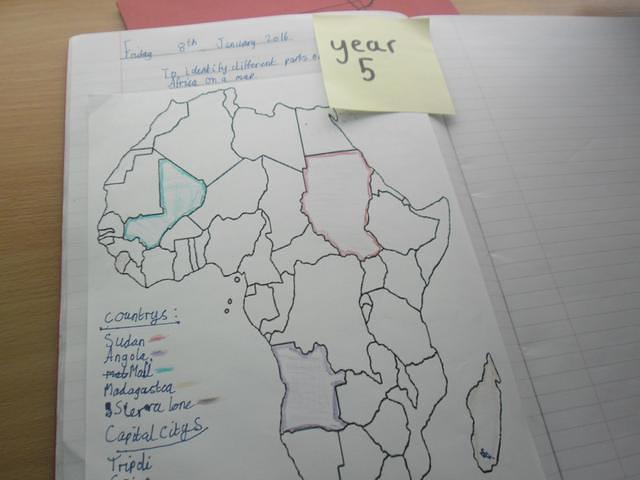 Friday 8th January 2016
To identify different parts o
Africa on a map
year
5
Countrys:
Sudan
Angola
Mali
Madagastca
Sierra lone
Capital Citys
Tripoli